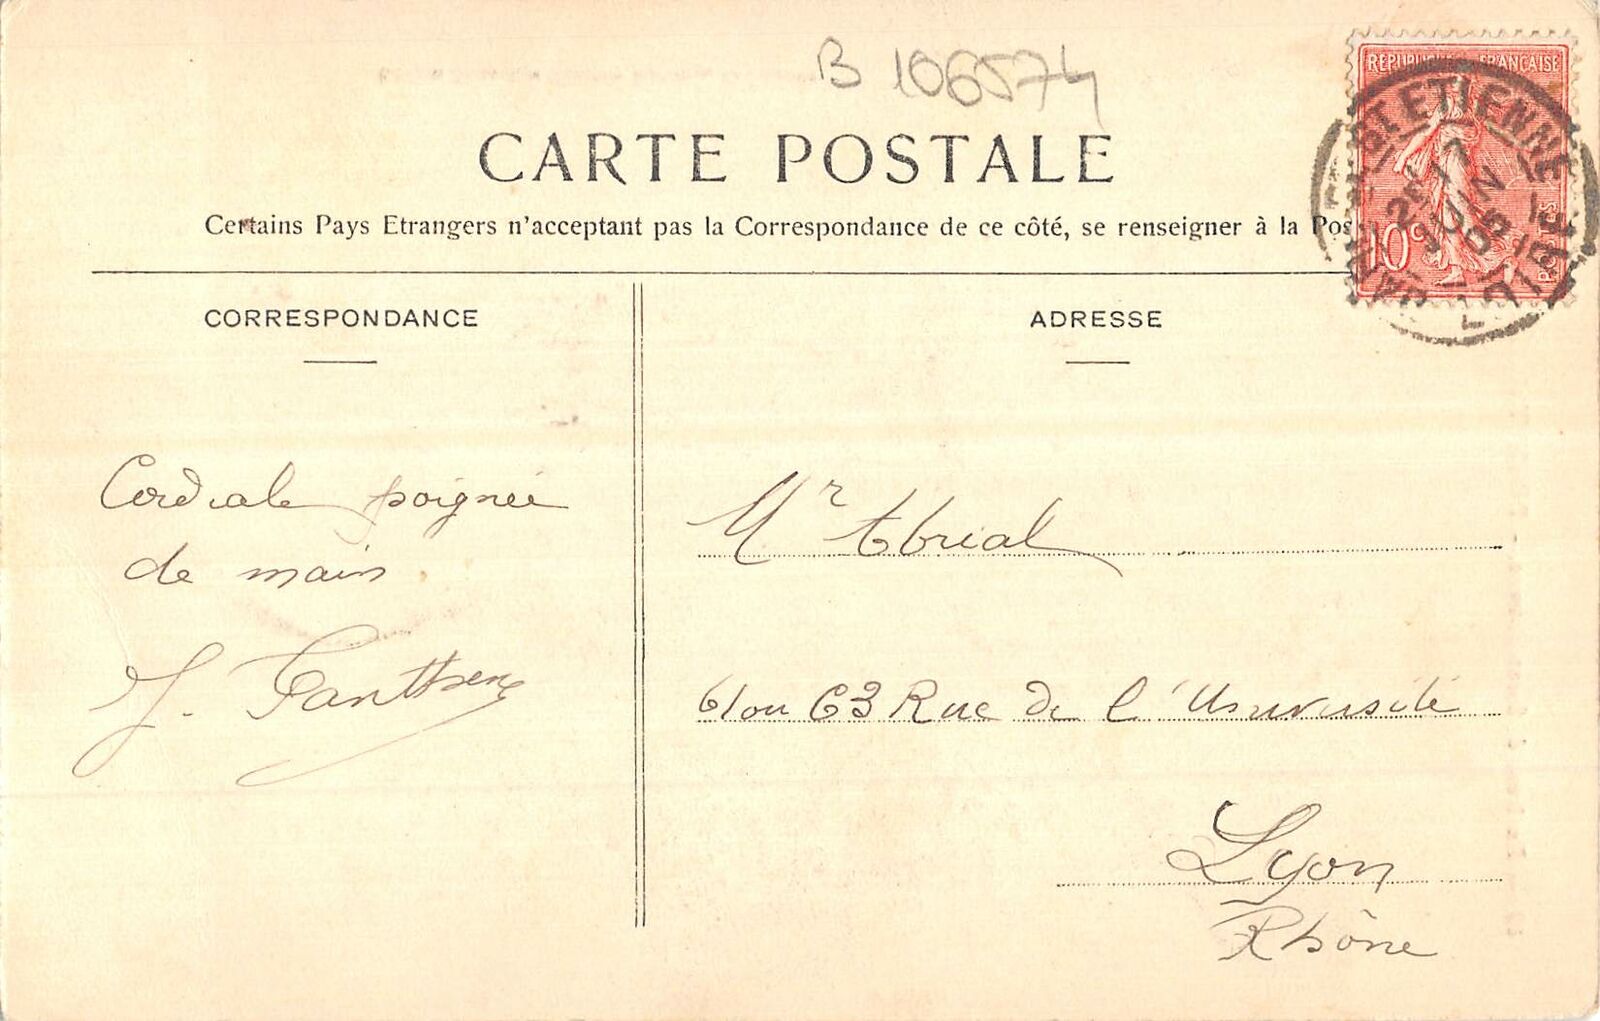 B 106574
CARTE POSTALE
Certains Pays Etrangers n'acceptant pas la Correspondance de ce côté, se renseigner à la Pos
REPUBLIQUE FRANÇAISE
10c
POSTES
ST ETIENNE
LOIRE
17
JUIN
CORRESPONDANCE
ADRESSE
Cordiale poignée
de main
J.
Mr Abrial
61 ou 63 Rue de l'Université
Lyon
Rhône